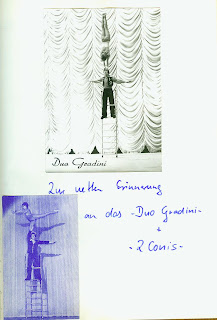 Duo Gradini
Zur netten Erinnerung
an das - Duo Gradini -
+
- 2 Conis -